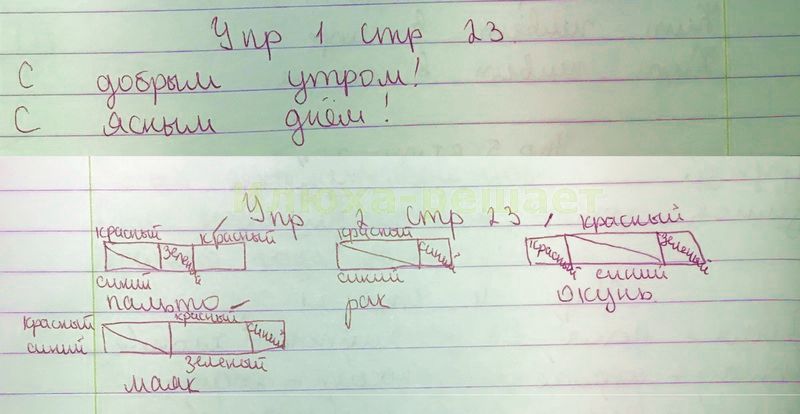 Упр 1 стр 23
С добрым утром!
С ясным днём!
Илюха-решает
Упр 2 стр 23
красный зеленый красный
синий
пальто
красный синий
синий
рак
красный
красный зеленый
синий
окунь
красный красный синий
синий зеленый
маяк